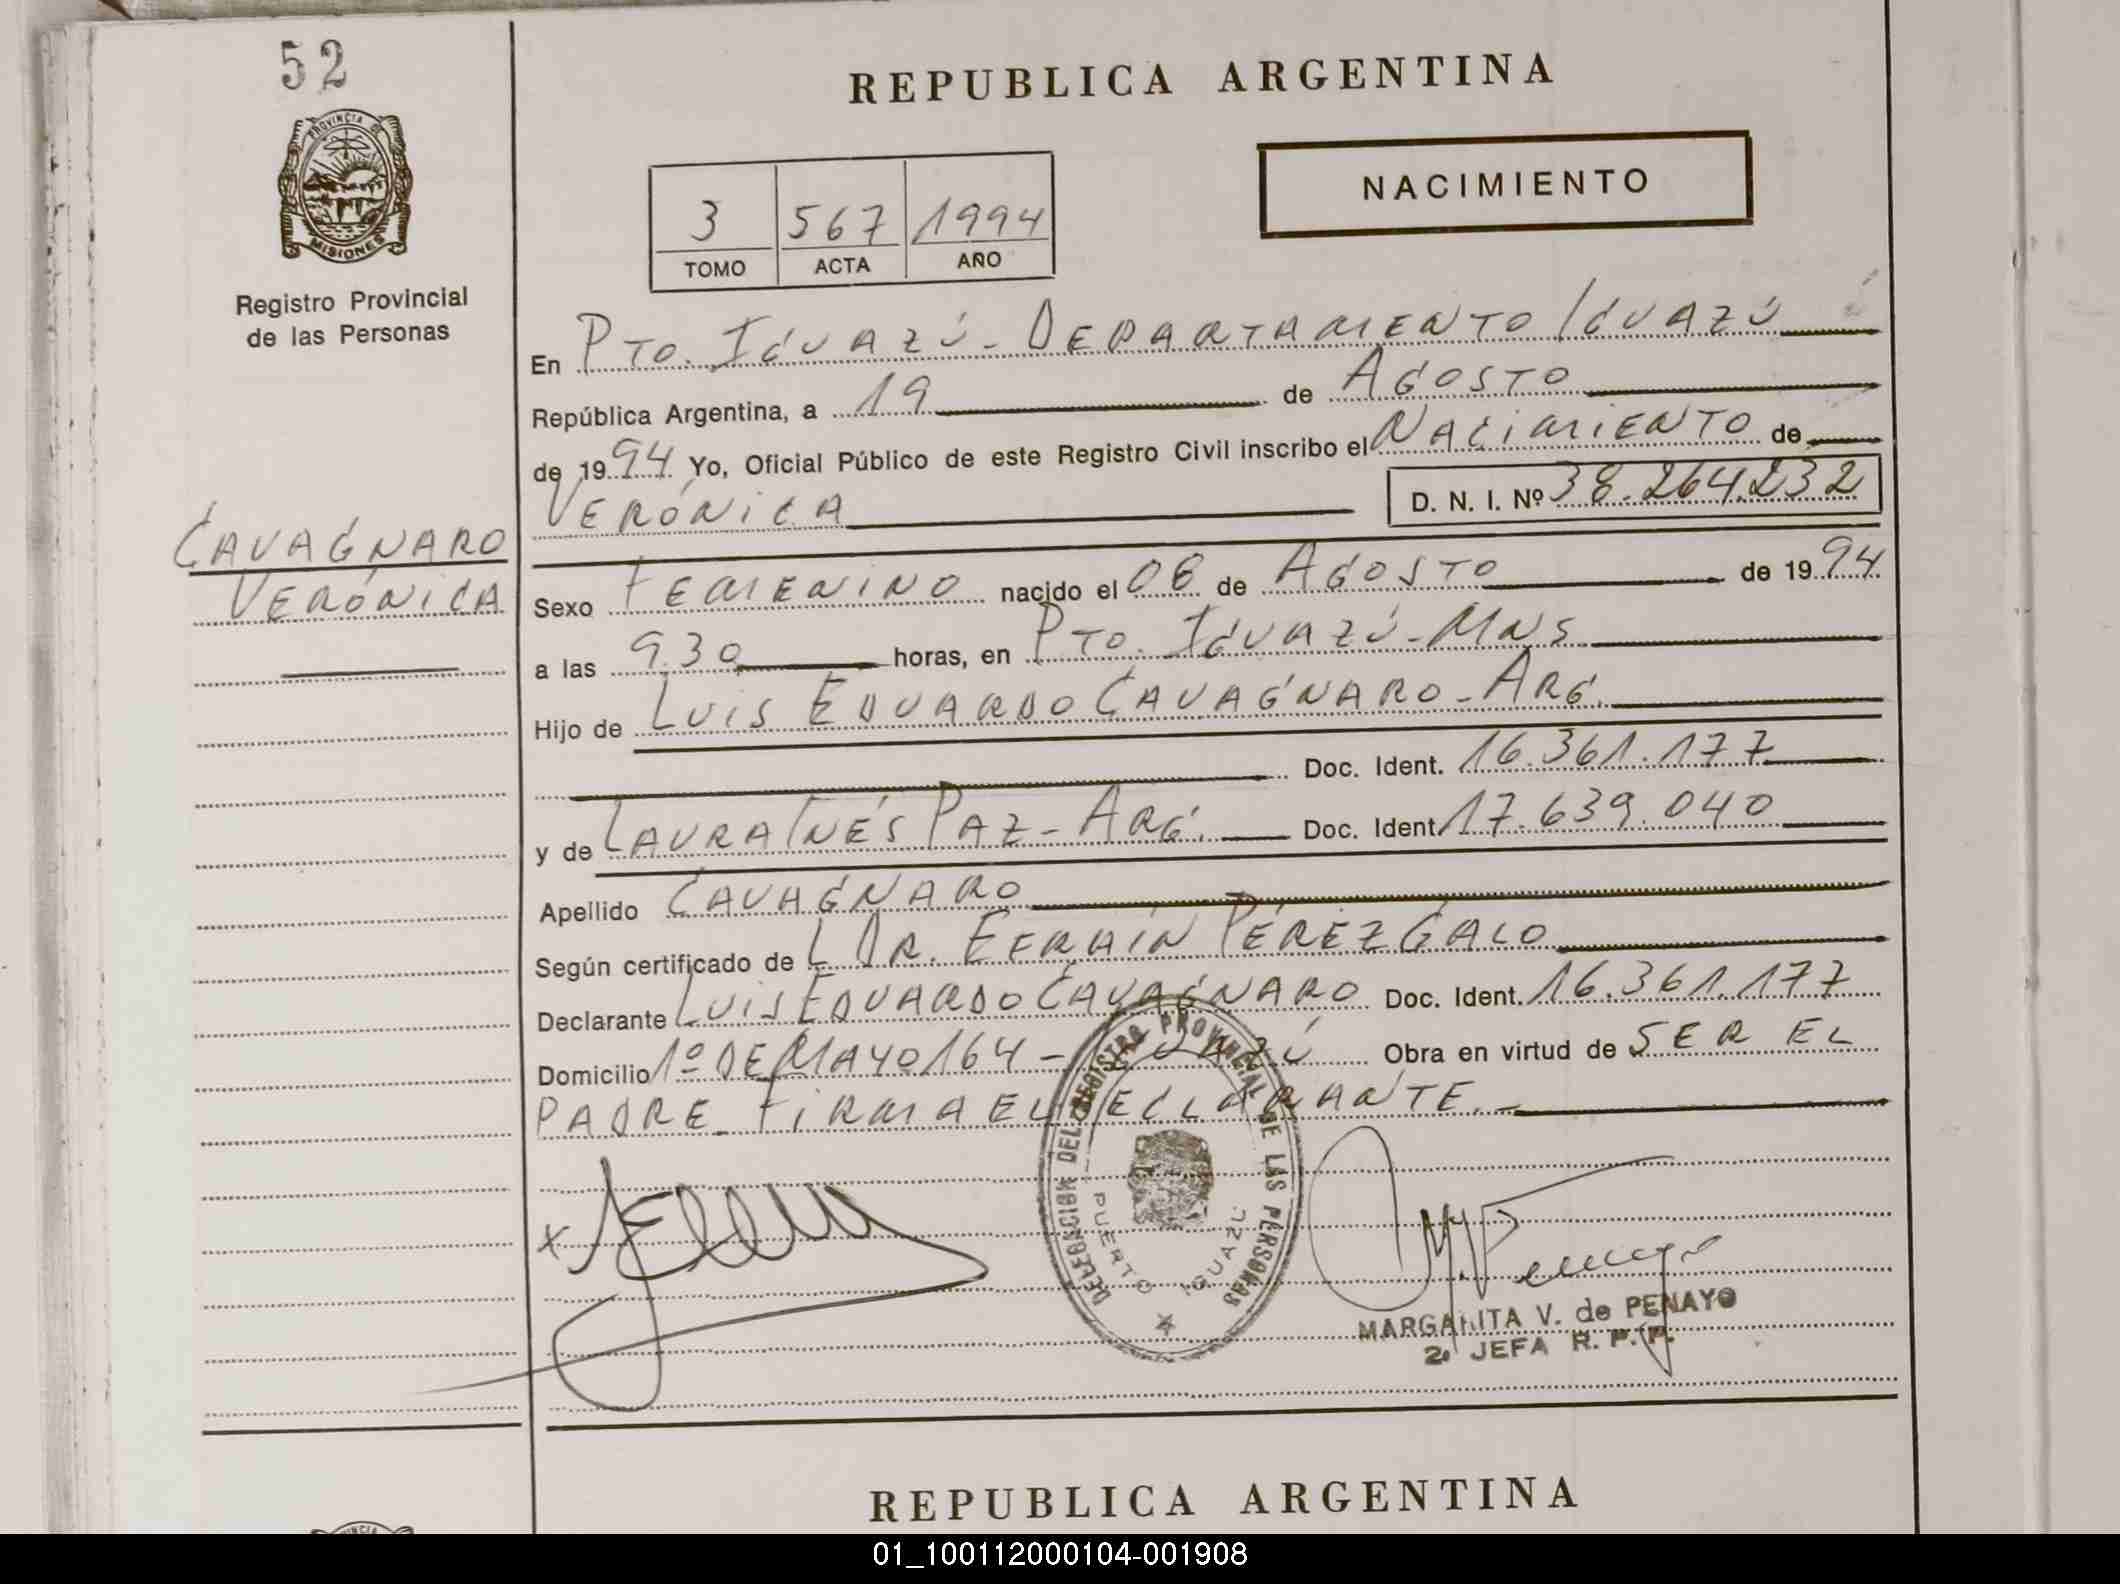 52
REPUBLICA ARGENTINA
PROVINCIA DE
MISIONES
NACIMIENTO
3 567 1994
TOMO ACTA AÑO
Registro Provincial
de las Personas
En Pto. Iguazú - Departamento Iguazú
República Argentina, a 19 de Agosto
de 1994 Yo, Oficial Público de este Registro Civil inscribo el Nacimiento de
Verónica D. N. I. Nº 38.264.232
Cavagnaro
Verónica
Sexo Femenino nacido el 08 de Agosto de 1994
a las 9.30 horas, en Pto. Iguazú - Mns
Hijo de Luis Eduardo Cavagnaro - Arg.
Doc. Ident. 16.361.177
y de Laura Inés Paz - Arg. Doc. Ident. 17.639.040
Apellido Cavagnaro
Según certificado de L Dr. Efraín Pérez Galo
Declarante Luis Eduardo Cavagnaro Doc. Ident. 16.361.177
Domicilio 1º de Mayo 164 - Iguazú Obra en virtud de ser el
padre. Firma el declarante. -
DELEGACION DEL REGISTRO PROVINCIAL DE LAS PERSONAS
PUERTO IGUAZU
x
MARGARITA V. de PENAYO
2ª JEFA R. P. P.
REPUBLICA ARGENTINA
01_100112000104-001908